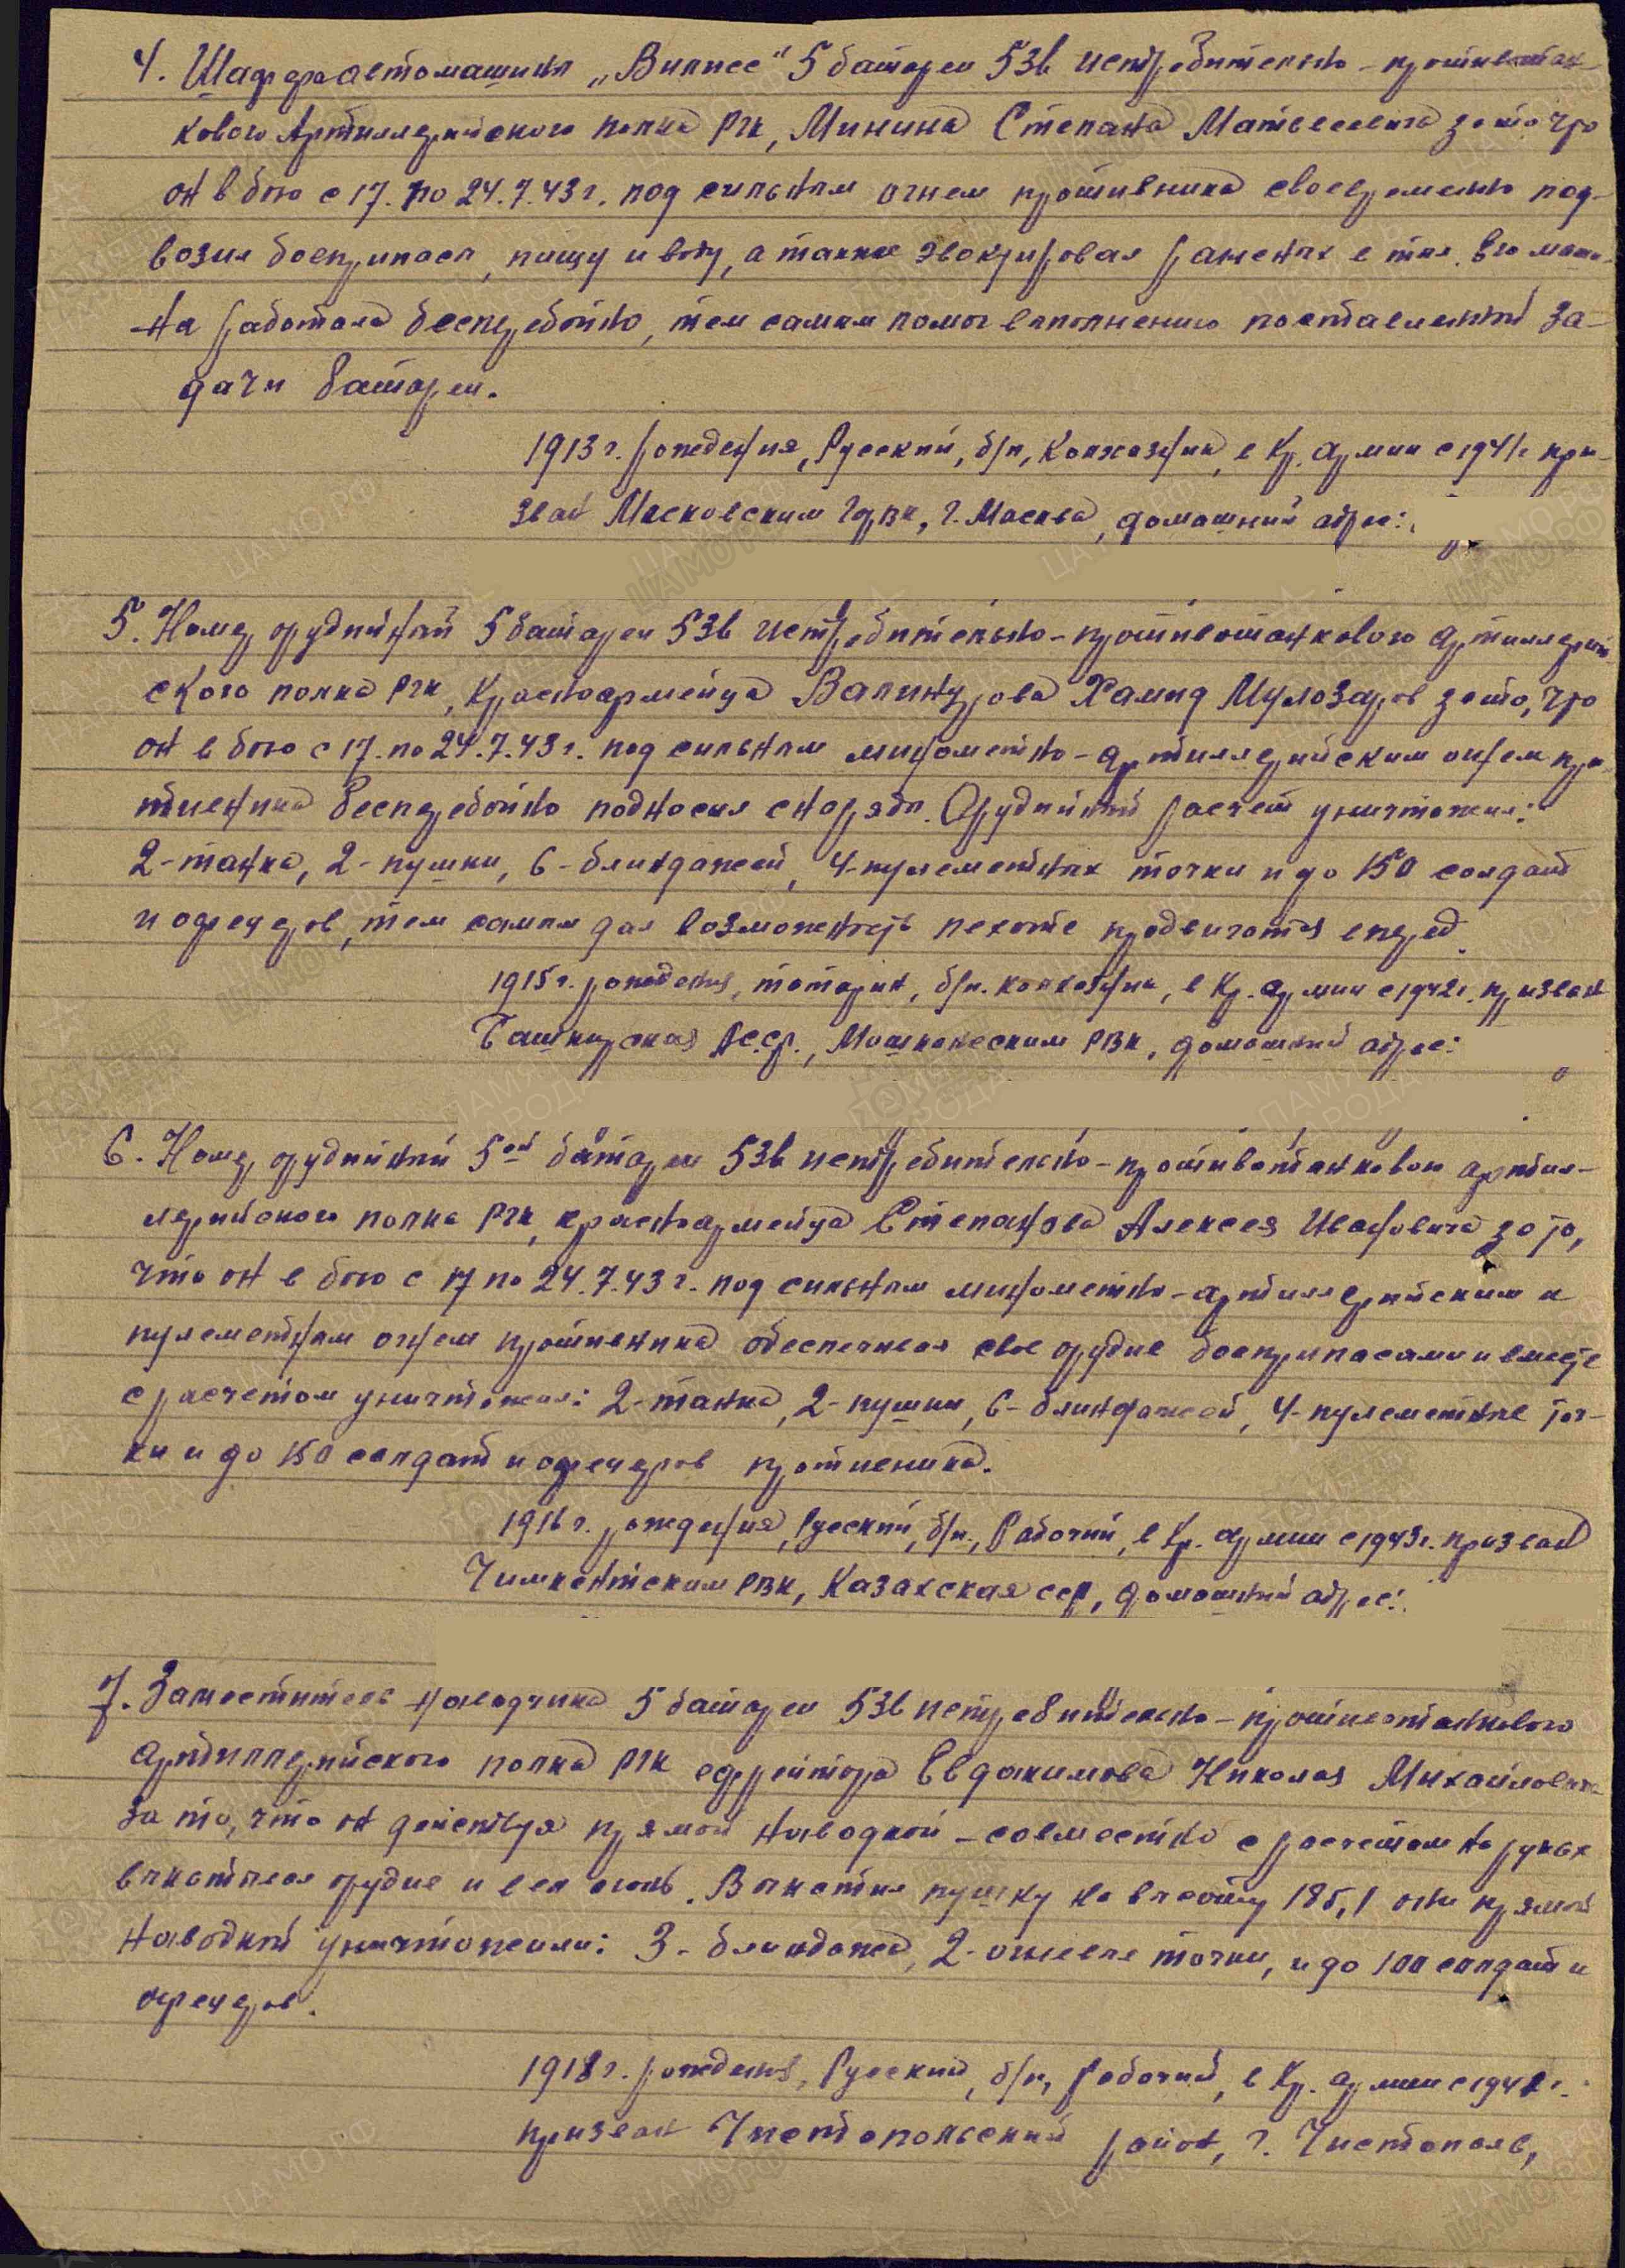 4. Шофера автомашины „Виллис“ 5 батареи 536 истребительно-противотан-
кового Артиллерийского полка РГК, Минина Степана Матвеевича за то что
он в бою с 17. по 24.7.43 г. под сильным огнем противника своевременно под-
возил боеприпасы, пищу и воду, а также эвокуировал раненых в тыл. Его маши-
на работала бесперебойно, тем самым помог выполнению поставленной за-
дачи батареи.
1913 г. рождения, Русский, б/п, Колхозник, в Кр. армии с 1941 г. при-
зван Московским ГРВК, г. Москва, домашний адрес:
5. Номер орудийный 5 батареи 536 истребительно-противотанкового артиллерий
ского полка РГК, Красноармейца Хамид за то, что
он в бою с 17. по 24.7.43 г. под сильным минометно-артиллерийским огнем про-
тивника бесперебойно подносил снаряды. Орудийный расчет уничтожил:
2-танка, 2-пушки, 6-блиндажей, 4-пулеметных точки и до 150 солдат
и офицеров, тем самым дал возможность пехоте продвигатся вперед.
1915 г. рождения, татарин, б/п. колхозник, в Кр. армии с 1942 г. призван
Башкирская АССР., РВК, домашний адрес:
6. Номер орудийный 5ой батареи 536 истребительно-противотанкового артил-
лерийского полка РГК, красноармейца Степанова Алексея Ивановича за то,
что он в бою с 17 по 24.7.43 г. под сильным минометно-артиллерийским и
пулеметным огнем противника обеспечивал свое орудие боеприпасами и вместе
с расчетом уничтожил: 2-танка, 2-пушки, 6-блиндажей, 4-пулеметные точ-
ки и до 150 солдат и офицеров противника.
1916 г. рождения, Русский, б/п., Рабочий, в Кр. армии с 1943 г. призван
Чимкентским РВК, Казахская ССР, домашний адрес:
7. Заместитель наводчика 5 батареи 536 истребительно-противотанкового
Артиллерийского полка РГК ефрейтора Евдакимова Николая Михайловича
за то, что он действуя прямой наводкой-совместно с расчетом на руках
выкатывал орудие и вел огонь. Выкатил пушку на высоту 185,1 огнем прямой
наводкой уничтожили: 3-блиндажа, 2-огневые точки, и до 100 солдат и
офицеров.
1918 г. рождения, Русский, б/п, рабочий, в Кр. армии с
призван Чистопольский район, г. Чистополь,